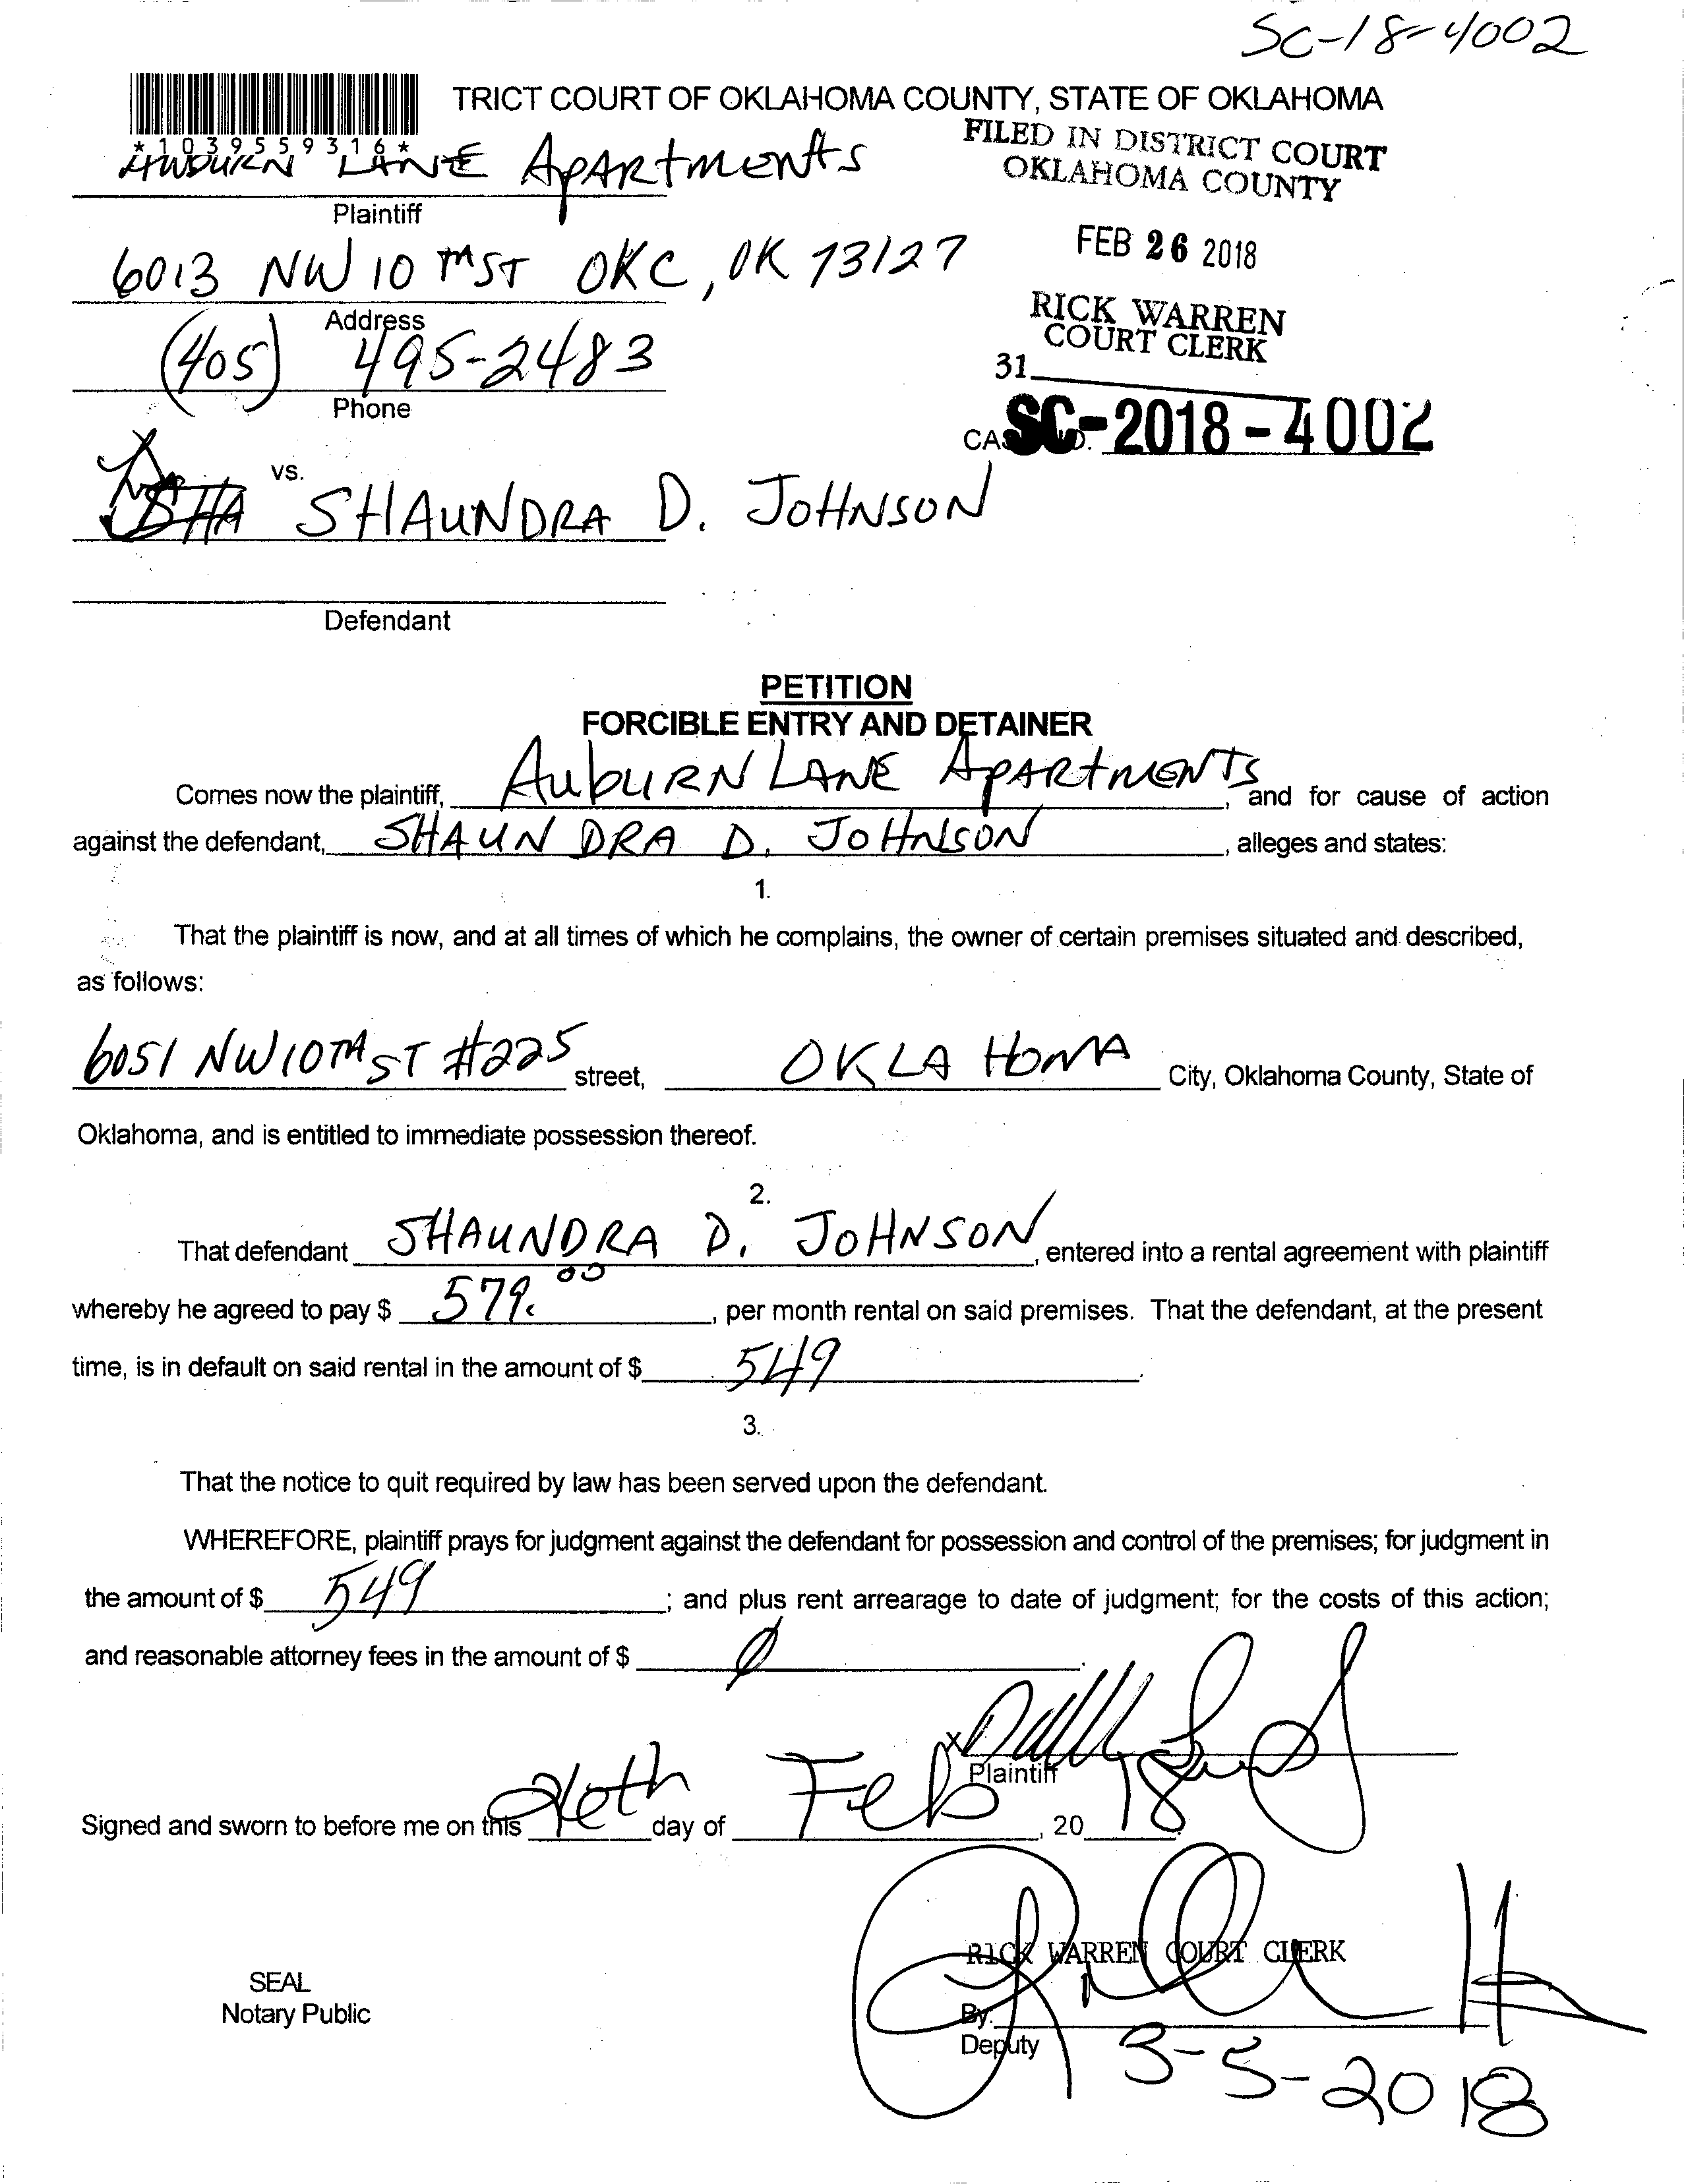 SC-18-4002
TRICT COURT OF OKLAHOMA COUNTY, STATE OF OKLAHOMA
*1039559316*
AUBURN LANE APARtMENtS
FILED IN DISTRICT COURT
OKLAHOMA COUNTY
Plaintiff
FEB 26 2018
6013 NW 10 TH ST OKC, OK 73127
RICK WARREN
COURT CLERK
Address
(405) 495-2483
31
Phone
SC-2018-4002
vs.
SHAUNDRA D. JOHNSON
Defendant
PETITION
FORCIBLE ENTRY AND DETAINER
Comes now the plaintiff, AubURN LANE APARtMENTS, and for cause of action
against the defendant, SHAUNDRA D. JOHNSON, alleges and states:
1.
That the plaintiff is now, and at all times of which he complains, the owner of certain premises situated and described,
as follows:
6051 NW 10TH ST #225 street, OKLAHOMA City, Oklahoma County, State of
Oklahoma, and is entitled to immediate possession thereof.
2.
That defendant SHAUNDRA D. JOHNSON, entered into a rental agreement with plaintiff
whereby he agreed to pay $ 579.00, per month rental on said premises. That the defendant, at the present
time, is in default on said rental in the amount of $ 549.
3.
That the notice to quit required by law has been served upon the defendant.
WHEREFORE, plaintiff prays for judgment against the defendant for possession and control of the premises; for judgment in
the amount of $ 549; and plus rent arrearage to date of judgment; for the costs of this action;
and reasonable attorney fees in the amount of $ Ø.
X
Plaintiff
Signed and sworn to before me on this 26th day of Feb, 2018.
RICK WARREN COURT CLERK
SEAL
Notary Public
By:
Deputy
3-5-2018